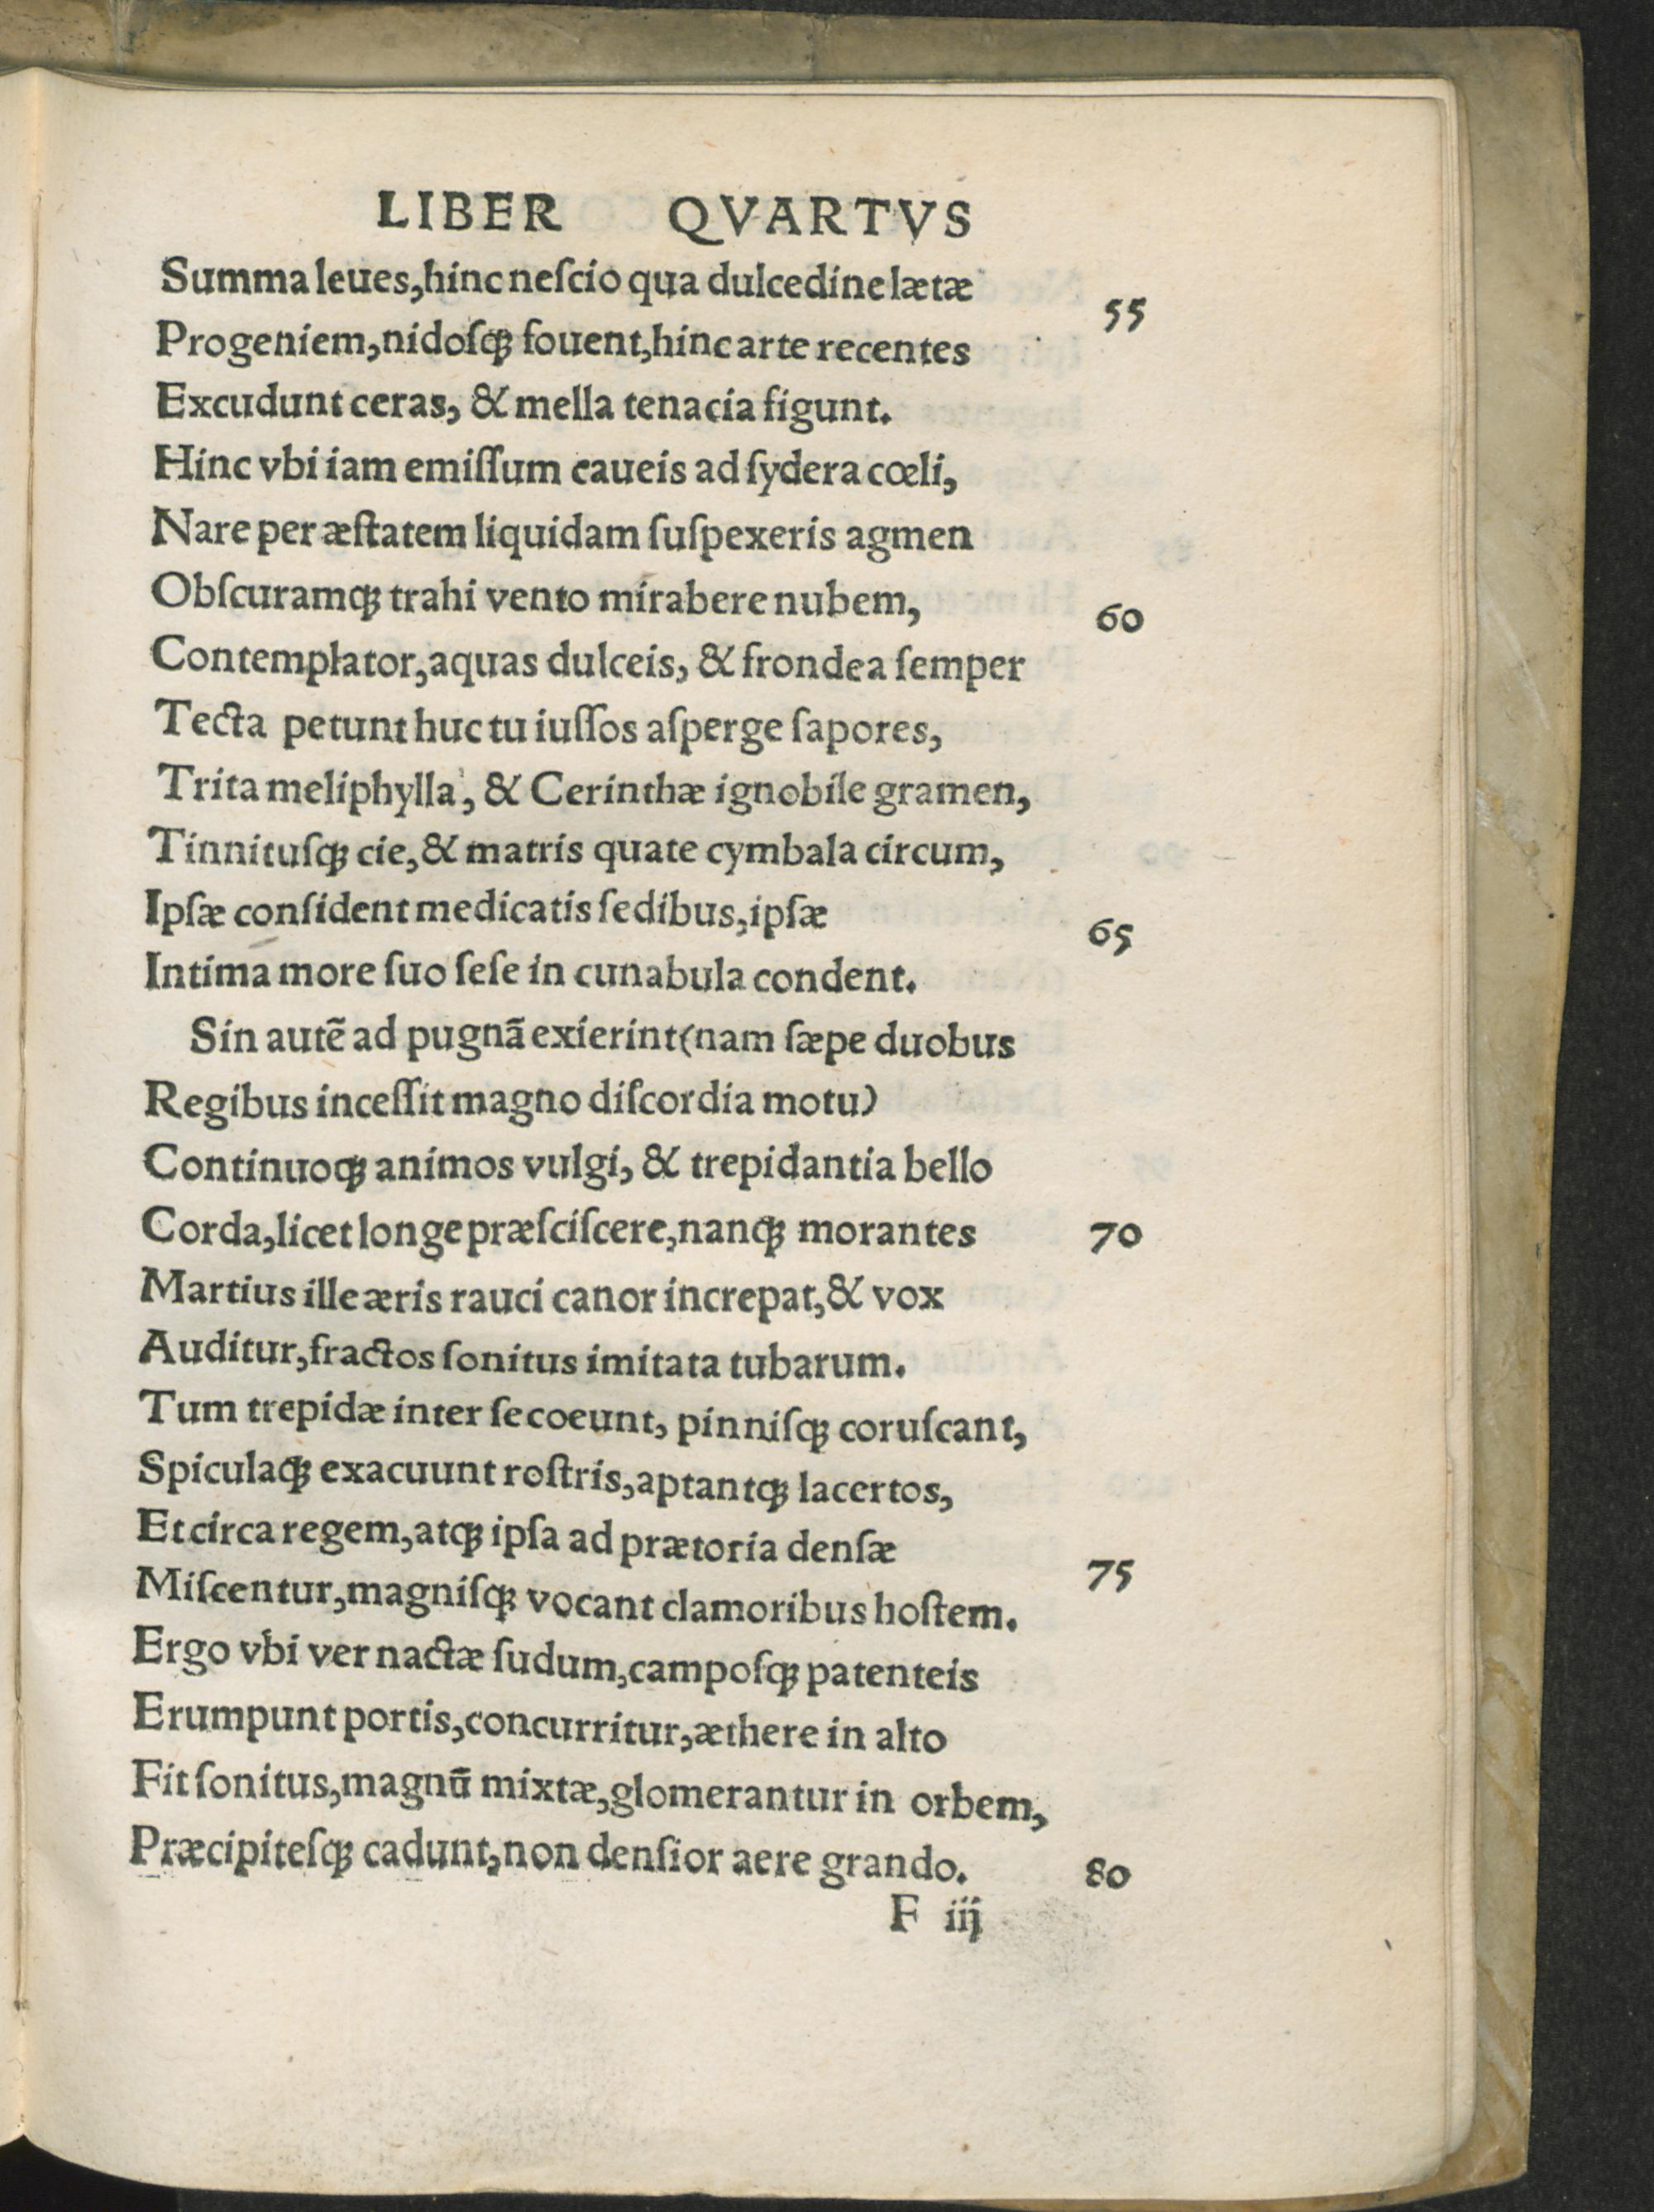 LIBER QVARTVS
Summa leues,hinc neſcio qua dulcedine lætæ
55
Progeniem,nidoſq; fouent,hinc arte recentes
Excudunt ceras, & mella tenacia figunt.
Hinc vbi iam emiſſum caueis ad ſydera cœli,
Nare per æſtatem liquidam ſuſpexeris agmen
Obſcuramq; trahi vento mirabere nubem,
60
Contemplator,aquas dulceis, & frondea ſemper
Tecta petunt huc tu iuſſos aſperge ſapores,
Trita meliphylla, & Cerinthæ ignobile gramen,
Tinnituſq; cie,& matris quate cymbala circum,
Ipſæ conſident medicatis ſedibus,ipſæ
65
Intima more ſuo ſeſe in cunabula condent.
Sin autē ad pugnā exierint(nam ſæpe duobus
Regibus inceſſit magno diſcordia motu)
Continuoq; animos vulgi, & trepidantia bello
Corda,licet longe præſciſcere,nanq; morantes
70
Martius ille æris rauci canor increpat,& vox
Auditur,fractos ſonitus imitata tubarum.
Tum trepidæ inter ſe coeunt, pinniſq; coruſcant,
Spiculaq; exacuunt roſtris,aptantq; lacertos,
Et circa regem,atq; ipſa ad prætoria denſæ
75
Miſcentur,magniſq; vocant clamoribus hoſtem.
Ergo vbi ver nactæ ſudum,campoſq; patenteis
Erumpunt portis,concurritur,æthere in alto
Fit ſonitus,magnū mixtæ,glomerantur in orbem,
Præcipiteſq; cadunt,non denſior aere grando.
80
F iij